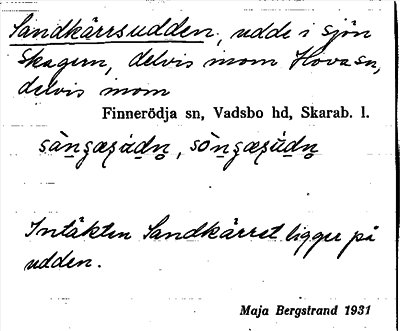 Sandkärrsudden, udde i sjön
Skagern, delvis inom Hova sn,
delvis inom
Finnerödja sn, Vadsbo hd, Skarab. l.
Intäkten Sandkärret ligger på
udden.
Maja Bergstrand 1931